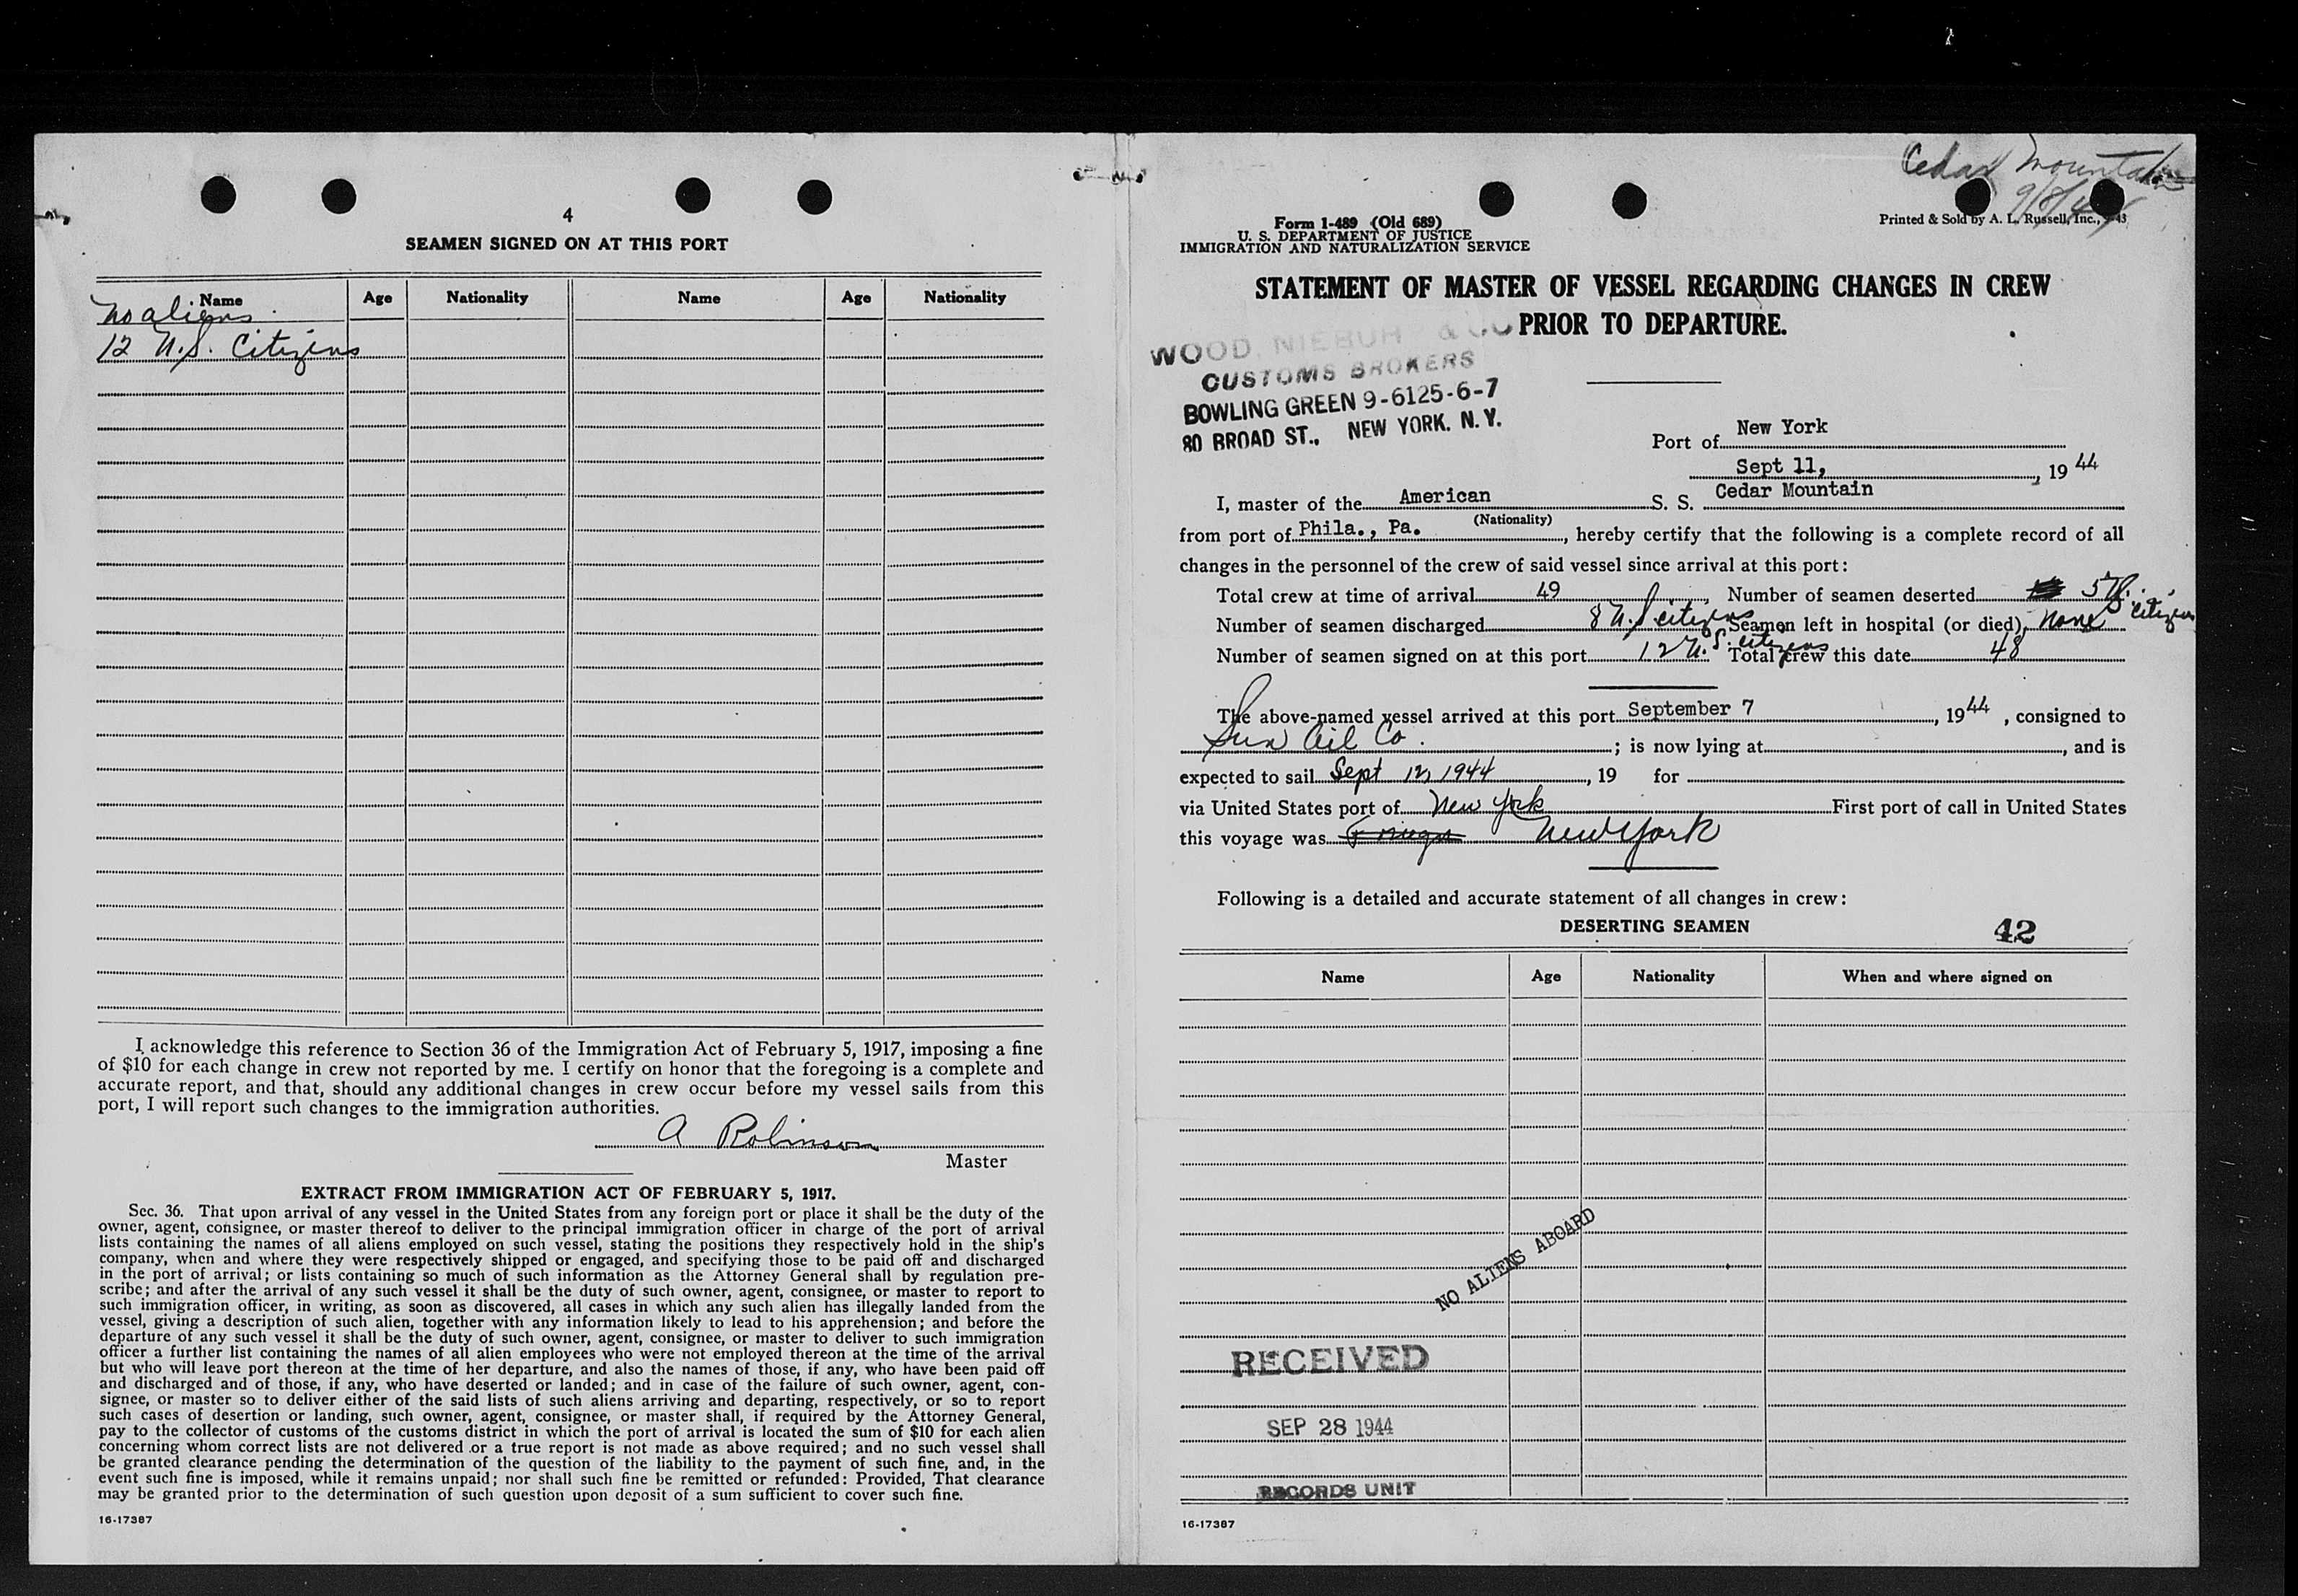 4
SEAMEN SIGNED ON AT THIS PORT
Name Age Nationality Name Age Nationality
no aliens
12 U.S. Citizens
I acknowledge this reference to Section 36 of the Immigration Act of February 5, 1917, imposing a fine
of $10 for each change in crew not reported by me. I certify on honor that the foregoing is a complete and
accurate report, and that, should any additional changes in crew occur before my vessel sails from this
port, I will report such changes to the immigration authorities.
A Robinson
Master
EXTRACT FROM IMMIGRATION ACT OF FEBRUARY 5, 1917.
Sec. 36. That upon arrival of any vessel in the United States from any foreign port or place it shall be the duty of the
owner, agent, consignee, or master thereof to deliver to the principal immigration officer in charge of the port of arrival
lists containing the names of all aliens employed on such vessel, stating the positions they respectively hold in the ship's
company, when and where they were respectively shipped or engaged, and specifying those to be paid off and discharged
in the port of arrival; or lists containing so much of such information as the Attorney General shall by regulation pre-
scribe; and after the arrival of any such vessel it shall be the duty of such owner, agent, consignee, or master to report to
such immigration officer, in writing, as soon as discovered, all cases in which any such alien has illegally landed from the
vessel, giving a description of such alien, together with any information likely to lead to his apprehension; and before the
departure of any such vessel it shall be the duty of such owner, agent, consignee, or master to deliver to such immigration
officer a further list containing the names of all alien employees who were not employed thereon at the time of the arrival
but who will leave port thereon at the time of her departure, and also the names of those, if any, who have been paid off
and discharged and of those, if any, who have deserted or landed; and in case of the failure of such owner, agent, con-
signee, or master so to deliver either of the said lists of such aliens arriving and departing, respectively, or so to report
such cases of desertion or landing, such owner, agent, consignee, or master shall, if required by the Attorney General,
pay to the collector of customs of the customs district in which the port of arrival is located the sum of $10 for each alien
concerning whom correct lists are not delivered or a true report is not made as above required; and no such vessel shall
be granted clearance pending the determination of the question of the liability to the payment of such fine, and, in the
event such fine is imposed, while it remains unpaid; nor shall such fine be remitted or refunded: Provided, That clearance
may be granted prior to the determination of such question upon deposit of a sum sufficient to cover such fine.
16-17387
Cedar Mountain
9/8/44
Form 1-489 (Old 689)
U. S. DEPARTMENT OF JUSTICE
IMMIGRATION AND NATURALIZATION SERVICE
Printed & Sold by A. L. Russell, Inc.,
STATEMENT OF MASTER OF VESSEL REGARDING CHANGES IN CREW
PRIOR TO DEPARTURE.
WOOD, NIEBUHR & CO
CUSTOMS BROKERS
BOWLING GREEN 9-6125-6-7
80 BROAD ST., NEW YORK, N. Y.
Port of New York
Sept 11, , 19 44
I, master of the American S. S. Cedar Mountain
(Nationality)
from port of Phila., Pa. , hereby certify that the following is a complete record of all
changes in the personnel of the crew of said vessel since arrival at this port:
Total crew at time of arrival 49 Number of seamen deserted 5 U.S. citizens
Number of seamen discharged 8 U.S. citizens Seamen left in hospital (or died) none
Number of seamen signed on at this port 12 U.S. citizens Total crew this date 48
The above-named vessel arrived at this port September 7 , 19 44 , consigned to
Sun Oil Co. ; is now lying at , and is
expected to sail Sept 12, 1944 , 19 for
via United States port of New York First port of call in United States
this voyage was New York
Following is a detailed and accurate statement of all changes in crew:
DESERTING SEAMEN 42
Name Age Nationality When and where signed on
NO ALIENS ABOARD
RECEIVED
SEP 28 1944
RECORDS UNIT
16-17387